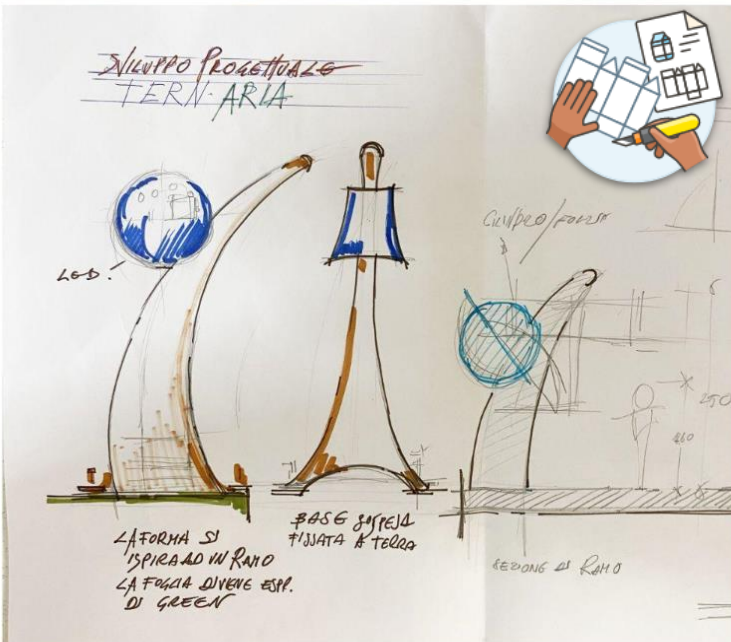 SVILUPPO PROGETTUALE
TERN-ARIA
LED.
CILINDRO/
LA FORMA SI
ISPIRA AD UN RAMO
LA FOGLIA DIVENE ESPR.
DI GREEN
BASE SOSPESA
FISSATA A TERRA
SEZIONE DI RAMO
250